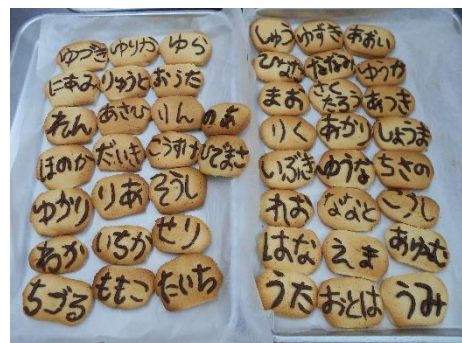 ゆづき ゆりか ゆら
にあみ りゅうと おうた
れん あさひ りん のあ
ほのか だいき こうすけ ひでまさ
ゆかり りあ そうし
わか いちか せり
ちづる ももこ たいち
しゅう ゆずき あおい
ひなた ななみ ゆうか
まお さくたろう あつき
りく あかり しょうま
いぶき ゆうな ちさの
れお ななと こうし
はな えま あゆむ
うた おとは うみ